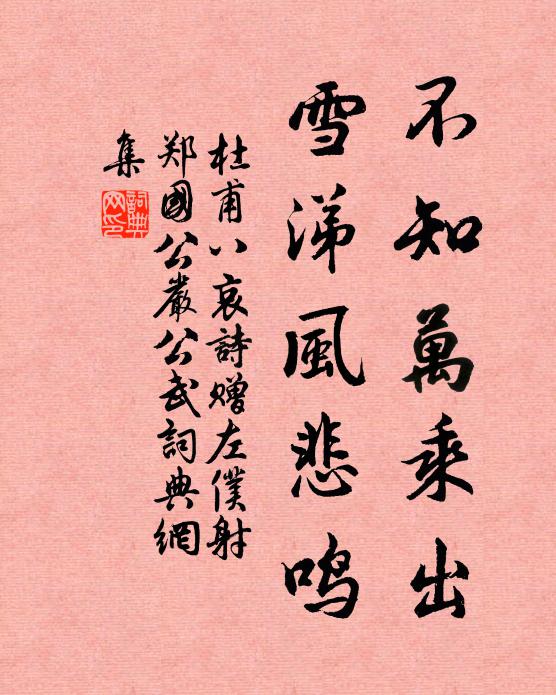 不知萬乘出
雪涕風悲鸣
杜甫八哀詩赠左僕射
郑國公嚴公武詞典網
集
詞典网印